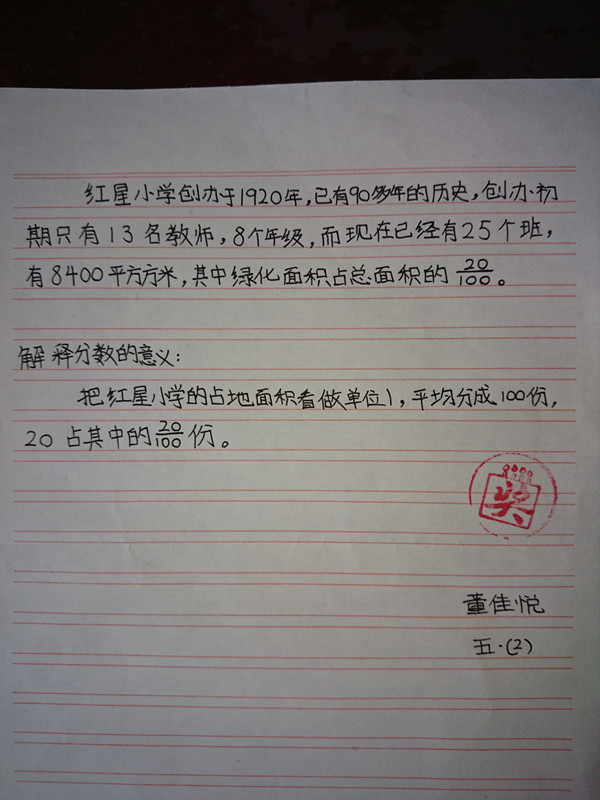 红星小学创办于1920年,已有90多年的历史,创办初
期只有13名教师,8个年级,而现在已经有25个班,
有8400平方方米,其中绿化面积占总面积的20/100。
解释分数的意义:
把红星小学的占地面积看做单位1,平均分成100份,
20占其中的20/100份。
奖
董佳悦
五·(2)